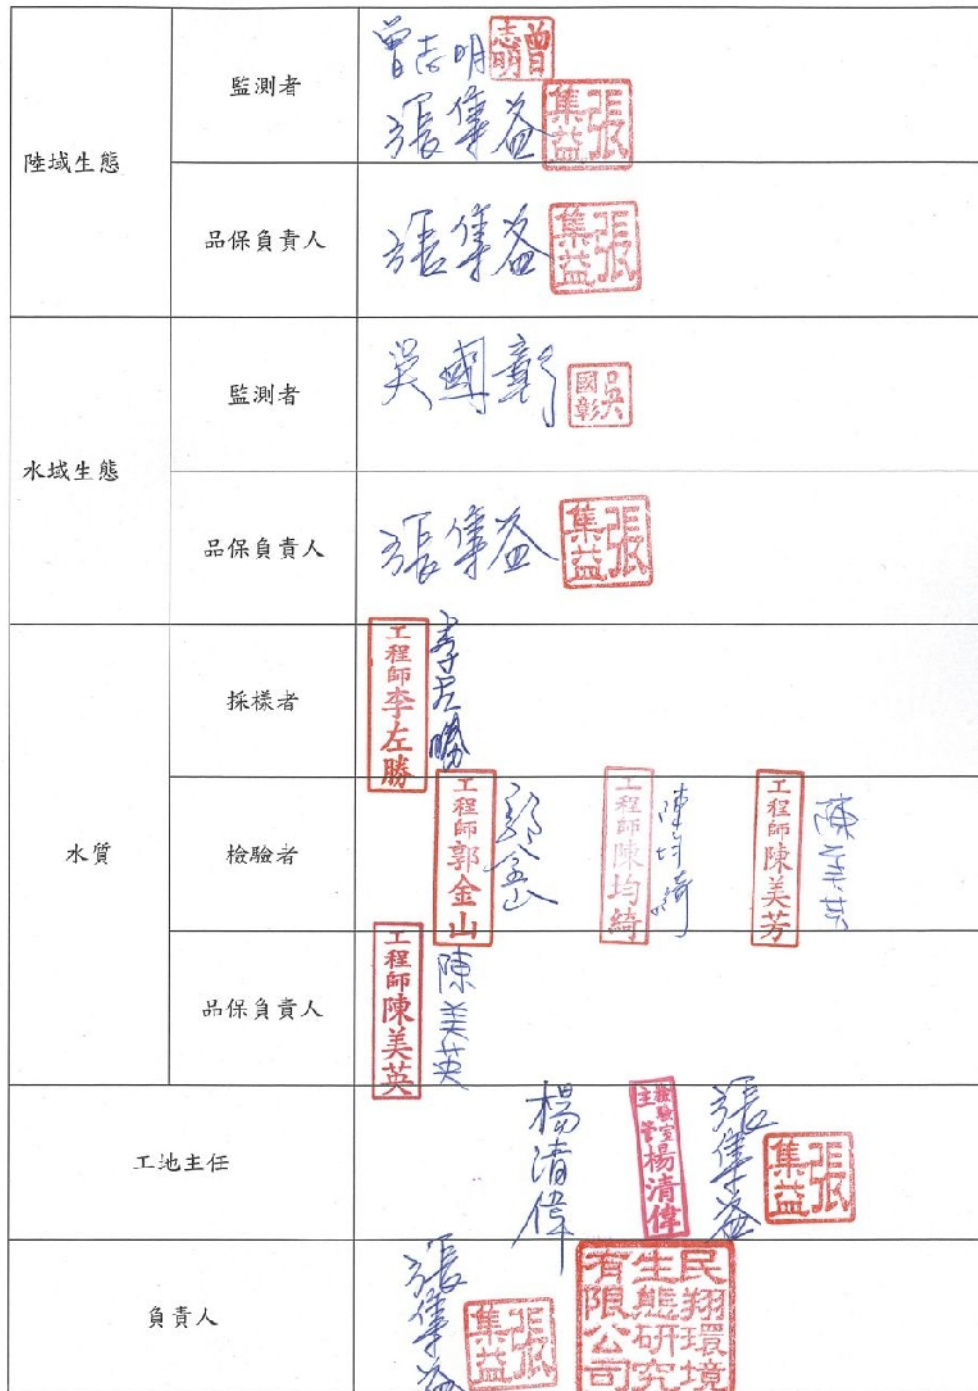 陸域生態
監測者
曾志明 曾志明
張集益 張集益
品保負責人
張集益 張集益
水域生態
監測者
吳國彰 吳國彰
品保負責人
張集益 張集益
水質
採樣者
工程師李左勝 李左勝
檢驗者
工程師郭金山 郭金山 工程師陳均綺 陳均綺 工程師陳美芳 陳美芳
品保負責人
工程師陳美英 陳美英
工地主任
楊清偉 檢驗室主管楊清偉 張集益 張集益
負責人
張集益 張集益 民翔環境生態研究有限公司